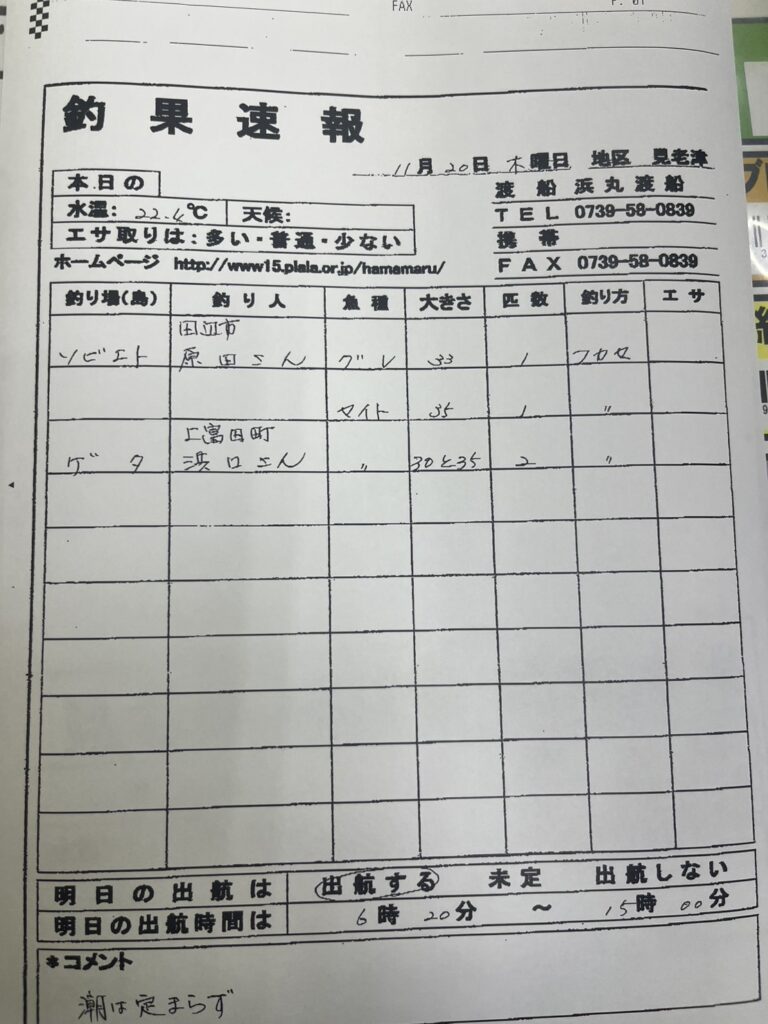 FAX
P. 01
釣果速報
11月20日 木曜日 地区 見老津
本日の
渡船 浜丸渡船
水温: 22.4℃ 天候:
TEL 0739-58-0839
エサ取りは:多い・普通・少ない
携帯
ホームページ http://www15.plala.or.jp/hamamaru/
FAX 0739-58-0839
釣り場(島) 釣り人 魚種 大きさ 匹数 釣り方 エサ
田辺市
ソビエト 原田さん グレ 33 1 フカセ
サイト 35 1 〃
上富田町
ゲタ 浜口さん 〃 30と35 2 〃
明日の出航は 出航する 未定 出航しない
明日の出航時間は 6時 20分 ～ 15時 00分
*コメント
潮は定まらず